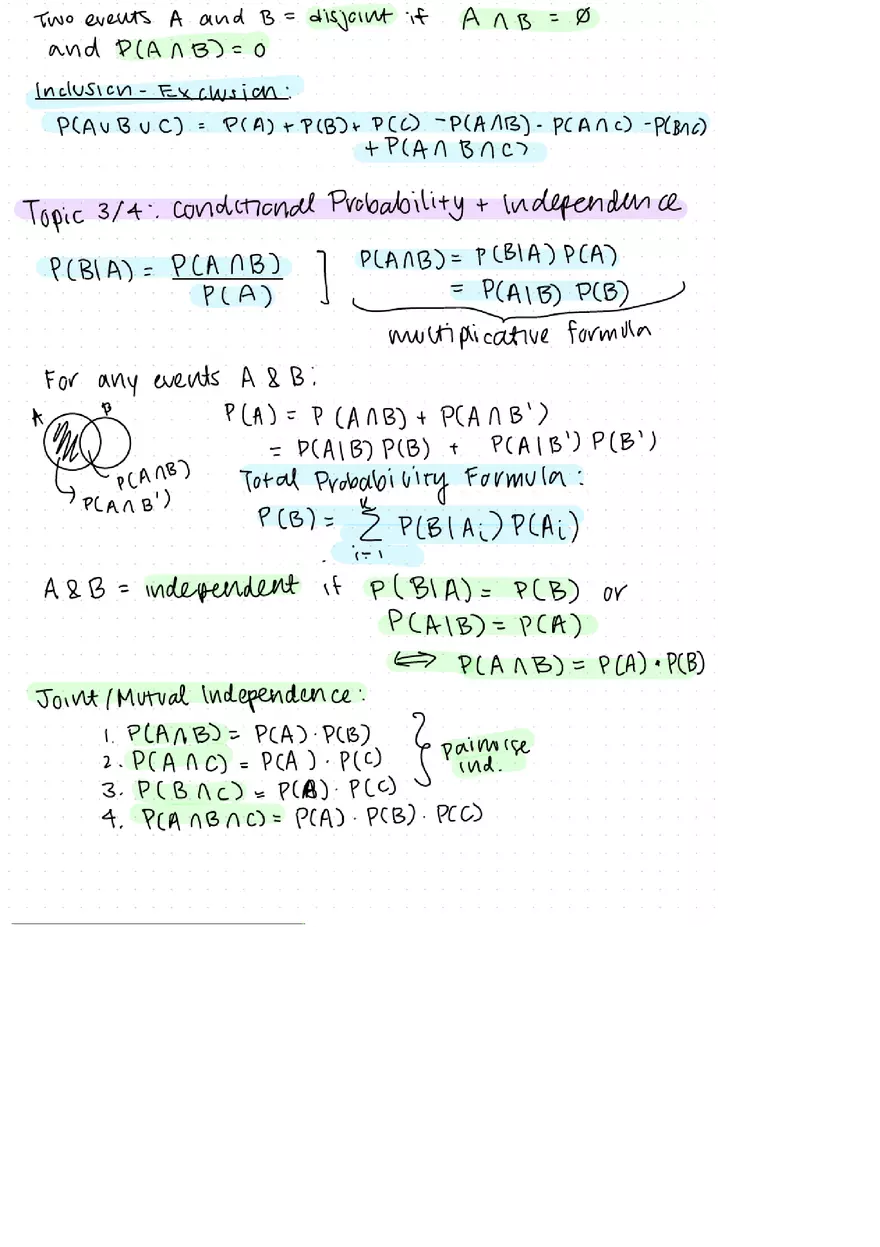 Two events A and B = disjoint if A ∩ B = ∅
and P(A ∩ B) = 0
Inclusion - Exclusion:
P(A ∪ B ∪ C) = P(A) + P(B) + P(C) - P(A ∩ B) - P(A ∩ C) - P(B ∩ C)
+ P(A ∩ B ∩ C)
Topic 3/4: Conditional Probability + Independence
P(B|A) = P(A ∩ B)
P(A)
] P(A ∩ B) = P(B|A) P(A)
= P(A|B) P(B)
multiplicative formula
For any events A & B:
A B
P(A ∩ B)
P(A ∩ B')
P(A) = P(A ∩ B) + P(A ∩ B')
= P(A|B) P(B) + P(A|B') P(B')
Total Probability Formula:
P(B) = k∑i=1 P(B|Ai) P(Ai)
A & B = independent if P(B|A) = P(B) or
P(A|B) = P(A)
⟺ P(A ∩ B) = P(A) · P(B)
Joint / Mutual Independence:
1. P(A ∩ B) = P(A) · P(B)
2. P(A ∩ C) = P(A) · P(C)
3. P(B ∩ C) = P(B) · P(C)
} pairwise
ind.
4. P(A ∩ B ∩ C) = P(A) · P(B) · P(C)